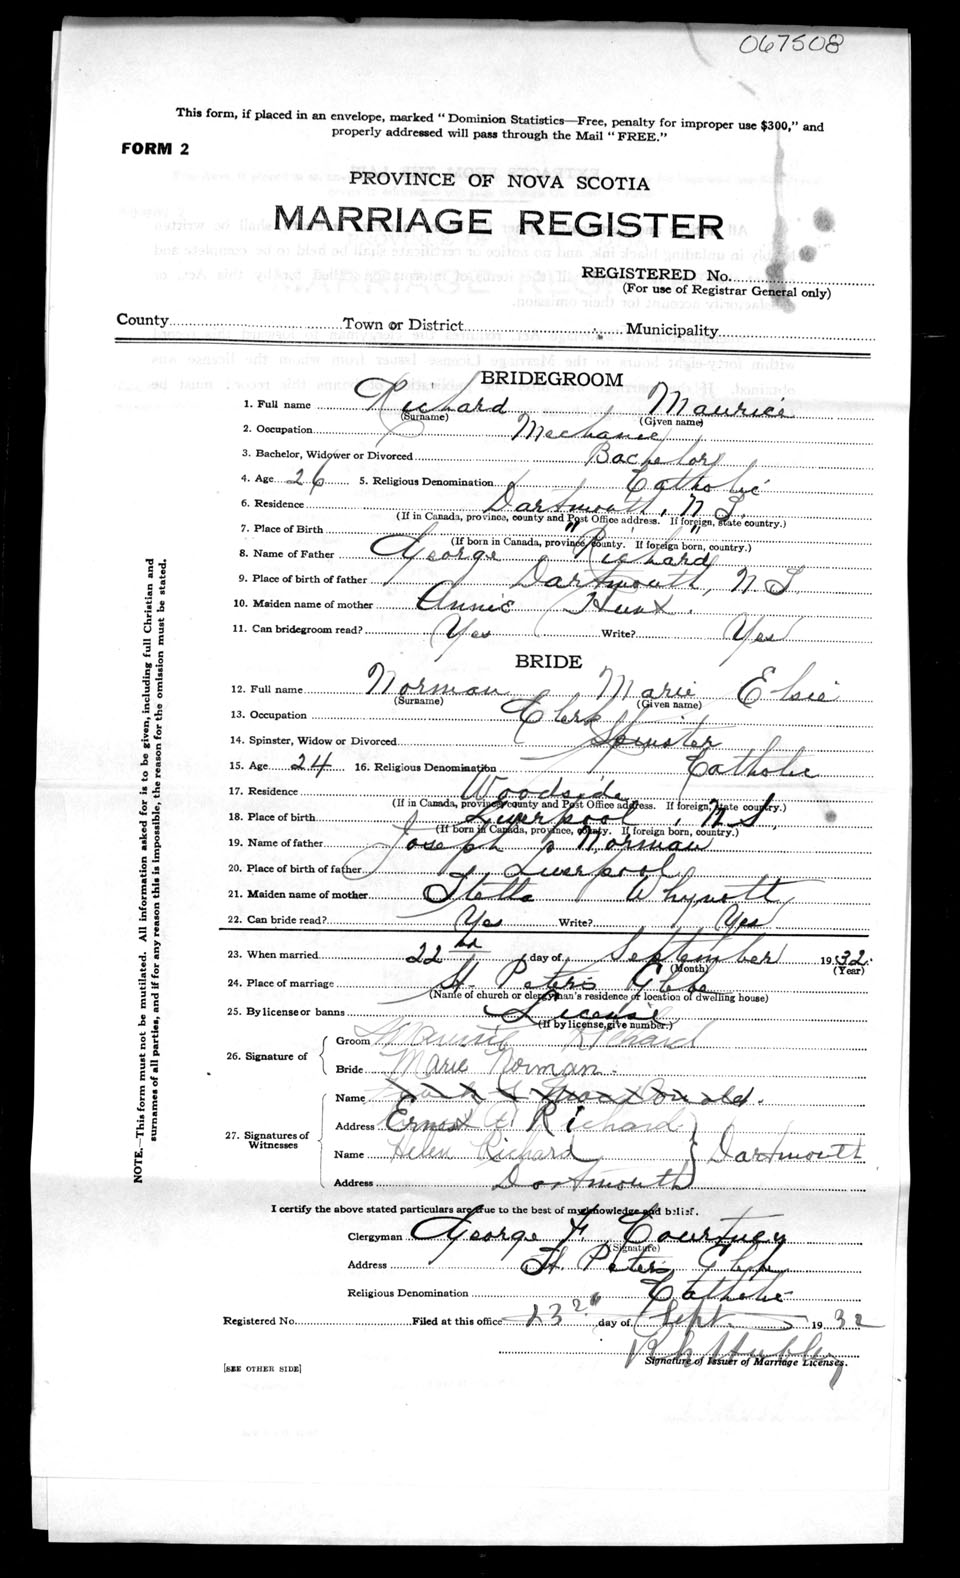 067508
This form, if placed in an envelope, marked "Dominion Statistics—Free, penalty for improper use $300," and
properly addressed will pass through the Mail "FREE."
FORM 2
PROVINCE OF NOVA SCOTIA
MARRIAGE REGISTER
REGISTERED No.
(For use of Registrar General only)
County Town or District Municipality
BRIDEGROOM
1. Full name Richard Maurice
(Surname) (Given name)
2. Occupation Mechanic
3. Bachelor, Widower or Divorced Bachelor
4. Age 26 5. Religious Denomination Catholic
6. Residence Dartmouth, N.S.
(If in Canada, province, county and Post Office address. If foreign, state country.)
7. Place of Birth " "
(If born in Canada, province, county. If foreign born, country.)
8. Name of Father George Richard
9. Place of birth of father Dartmouth, N.S.
10. Maiden name of mother Annie
11. Can bridegroom read? Yes Write? Yes
BRIDE
12. Full name Norman Marie Elsie
(Surname) (Given name)
13. Occupation Clerk
14. Spinster, Widow or Divorced Spinster
15. Age 24 16. Religious Denomination Catholic
17. Residence Woodside
(If in Canada, province, county and Post Office address. If foreign, state country.)
18. Place of birth Liverpool, N.S.
(If born in Canada, province, county. If foreign born, country.)
19. Name of father Joseph P Norman
20. Place of birth of father Liverpool
21. Maiden name of mother Stella Whynott
22. Can bride read? Yes Write? Yes
23. When married 22nd day of September 1932.
(Month) (Year)
24. Place of marriage St. Peters Glebe
(Name of church or clergyman's residence or location of dwelling house)
25. By license or banns License
(If by license, give number.)
26. Signature of Groom Maurice Richard
Bride Marie Norman.
27. Signatures of Witnesses
Name
Address Ernest Richard
Name Helen Richard Dartmouth
Address Dartmouth
I certify the above stated particulars are true to the best of my knowledge and belief.
Clergyman George F. Courtney
(Signature)
Address St. Peters Glebe
Religious Denomination Catholic
Registered No. Filed at this office 23rd day of Sept. 1932
Signature of Issuer of Marriage Licenses.
[SEE OTHER SIDE]
NOTE.—This form must not be mutilated. All information asked for is to be given, including full Christian and
surnames of all parties, and if for any reason this is impossible, the reason for the omission must be stated.